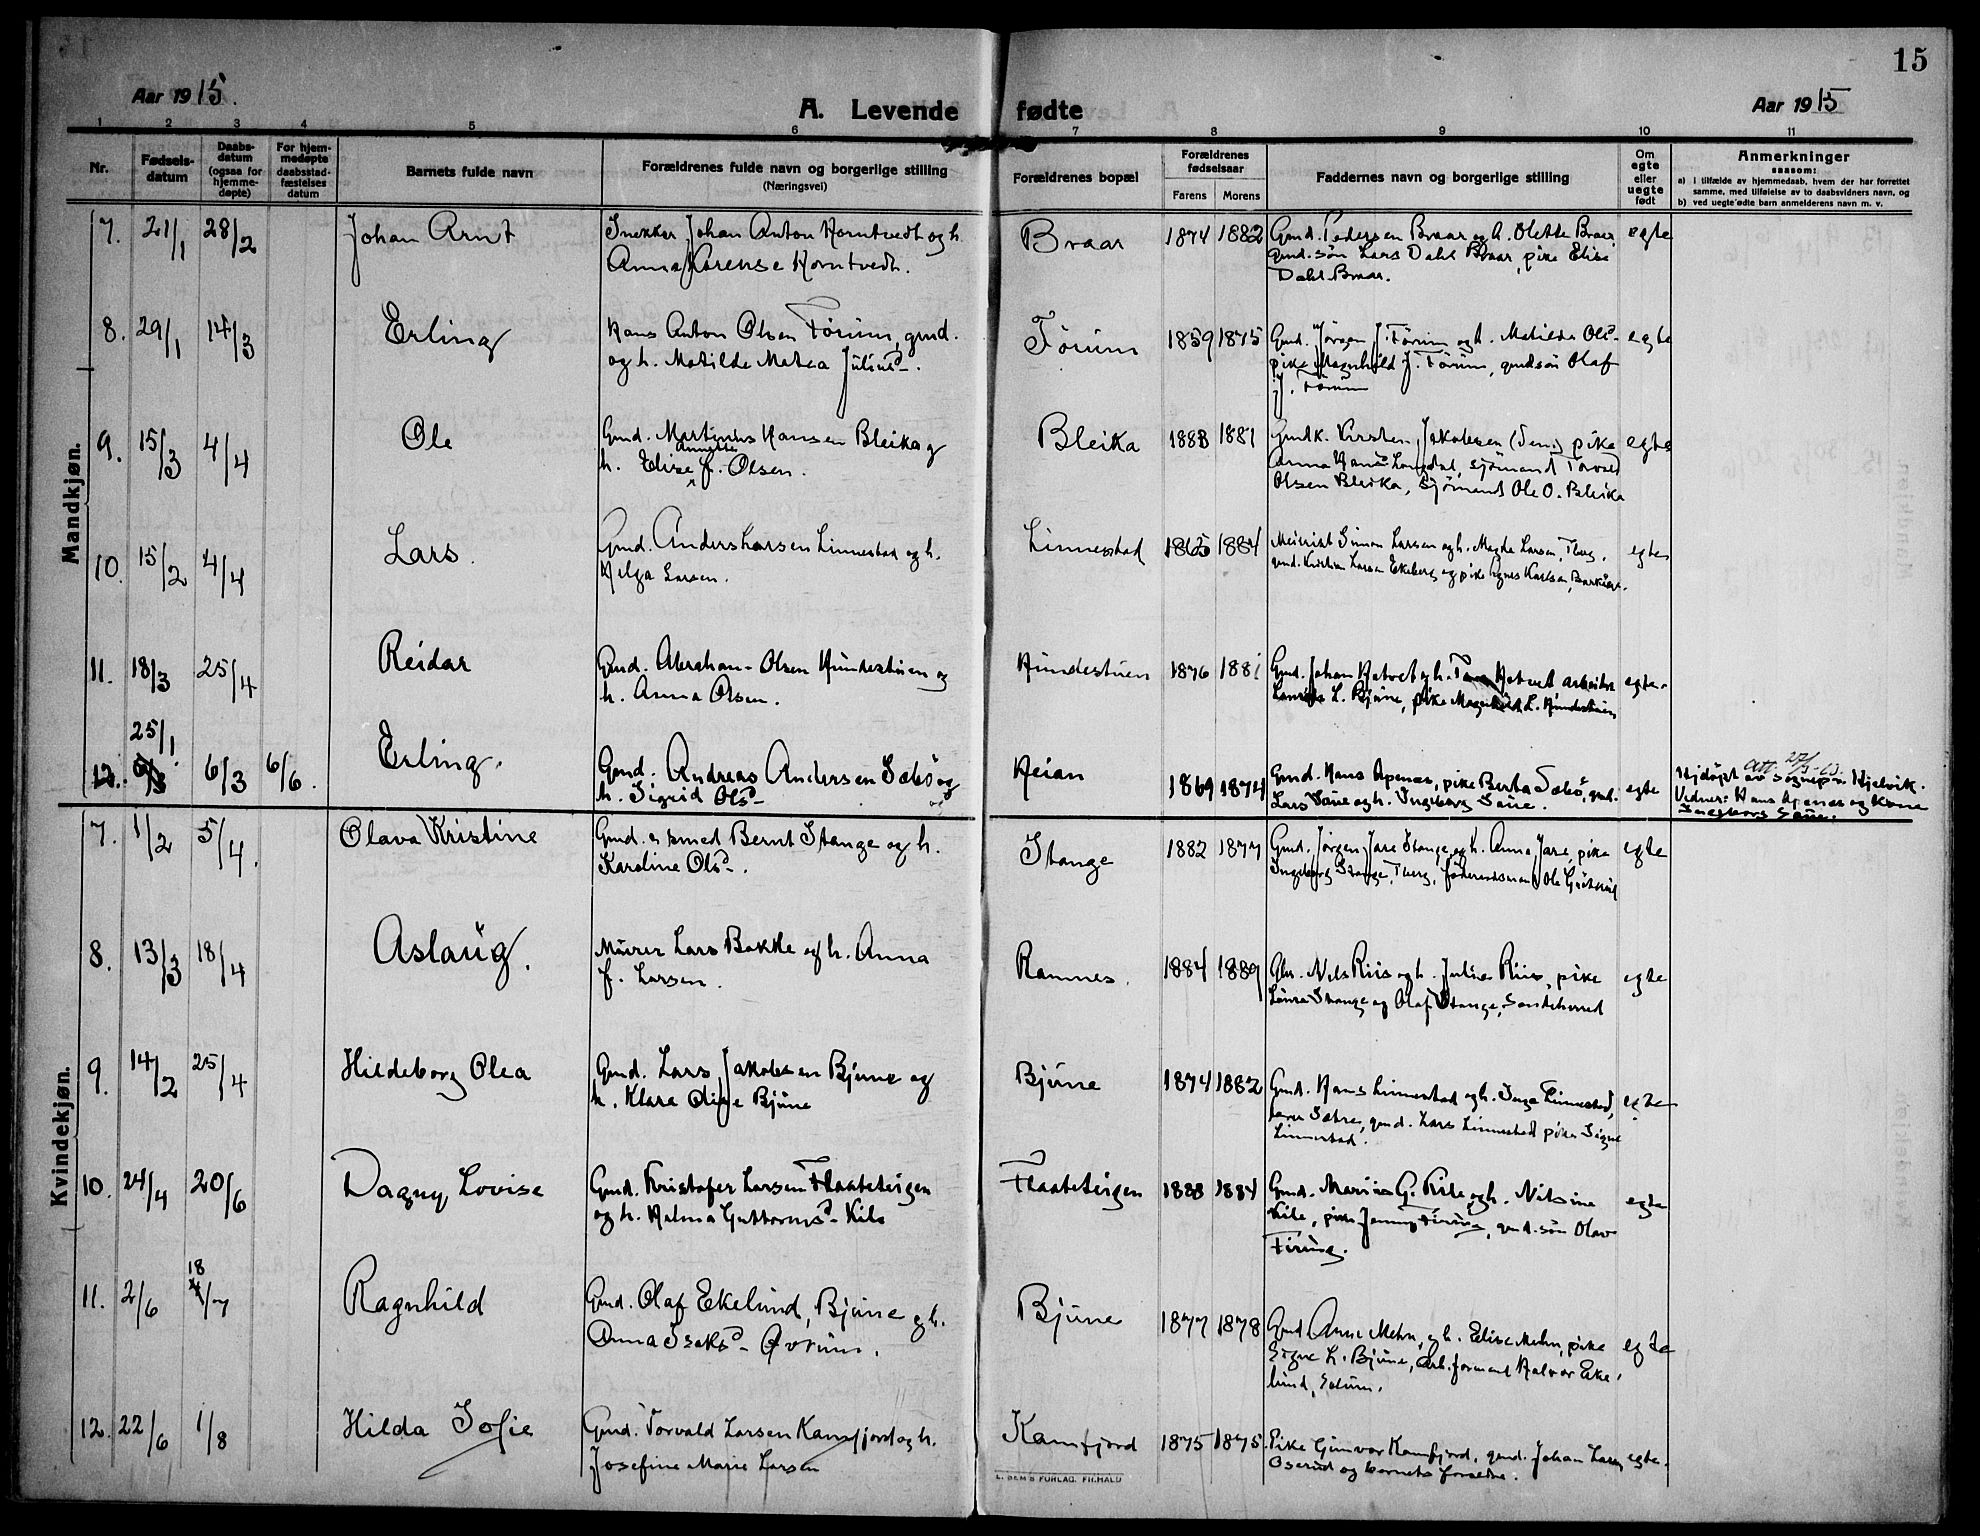 15
Aar 1915.
A. Levende fødte
Aar 1915
1 2 3 4 5 6 7 8 9 10 11
Nr.
Fødsels-
datum
Daabs-
datum
(ogsaa for
hjemme-
døpte)
For hjem-
medøpte
daabsstad-
fæstelses
datum
Barnets fulde navn
Forældrenes fulde navn og borgerlige stilling
(Næringsvei)
Forældrenes bopæl
Forældrenes
fødselsaar
Farens Morens
Faddernes navn og borgerlige stilling
Om
egte
eller
uegte
født
Anmerkninger
saasom:
a) i tilfælde av hjemmedaab, hvem der har forrettet
samme, med tilføielse av to daabsvidners navn, og
b) ved uegte fødte barn anmelderens navn m. v.
Mandkjøn.
7. 21/1 28/2 Johan Arnt Snekker Johan Anton Horntvedt og h. Braar 1874 1882 Gmd. Pedersen Braar og h. Olette Braar egte
Anna Karense Horntvedt. gmd. søn Lars Dahl Braar, pike Elise
Dahl Braar.
8. 29/1 14/3 Erling Hans Anton Olsen Förum, gmd. Förum 1859 1875 Gmd. Jörgen J. Förum og h. Matilde Olsd- egte
og h. Matilde Matea Juliusd-. pike Magnhild J. Förum, gmdsön Olaf
J. Förum
9. 15/3 4/4 Ole Gmd. Martinius Hansen Bleika og Bleika 1883 1881 Gmdk. Kirsten Jakobsen (Tem) pike egte
h. Elise Annette f. Olsen. Anna Langdal, sjömand Torvald
Olsen Bleika, sjömand Ole O. Bleika
10. 15/2 4/4 Lars. Gmd. Anders Larsen Linnestad og h. Linnestad 1865 1884 Meierist Simon Larsen og h. Magda Larsen, Tberg. egte
Helga Larsen. gmd. Kristian Larsen Ekeberg og pike Agnes Karlsen,
11. 18/3 25/4 Reidar Gmd. Abraham Olsen Hundestuen og Hundestuen 1876 1881 Gmd. Johan Hotvet og h. Hotvet arbeider egte.
h. Anna Olsen. L. Bjune, pike Magnhild L. Hundestuen
12. 25/1 6/3 6/6. Erling. Gmd. Andreas Andersen Sæbö og Heian 1869 1874 Gmd. Hans Apenæs, pike Berta Sæbö, gmd. egte Hjdöpt av sognepr. Hjelvik.
h. Sigrid Olsd- Lars Saue og h. Ingeborg Saue. Vidner: Hans Apenæs og kone
Ingeborg Saue.
Kvindekjøn.
7. 1/2 5/4. Olava Kristine Gmd. & smed Bernt Stange og h. Stange 1882 1877 Gmd. Jörgen Jare Stange og h. Anna Jare, pike egte
Karoline Olsd-. Ingeborg Stange, Tberg, föderaadsmand Ole
8. 13/3 18/4 Aslaug. Murer Lars Bakke og h. Anna Ramnes. 1884 1889 Gbr. Nils Riis og h. Julie Riis, pike egte
f. Larsen. Laura Stange og Olaf Stange, Sandeherred
9. 14/2 25/4 Hildeborg Olea Gmd. Lars Jakobsen Bjune og Bjune 1874 1882 Gmd. Hans Linnestad og h. Inga Linnestad, egte
h. Klara Olise Bjune Sætre, gmd. Lars Linnestad pike Signe
Linnestad.
10. 24/4 20/6 Dagny Lovise Gmd. Kristofer Larsen Flaateteigen Flaateteigen 1888 1884 Gmd. Marius G. Kile og h. Nilsine egte
og h. Halma Guttormsd- Kile Kile, pike Jenny Firing, gmd. sön Olav
Firing.
11. 2/6 18/7 Ragnhild Gmd. Olaf Ekelund, Bjune og h. Bjune 1877 1878 Gmd Mehn, og h. Elise Mehn, pike egte
Anna Isaksd- Övrum. Signe L. Bjune, Arb. formand Halvor Eke-
lund, Solum.
12. 22/6 1/8 Hilda Sofie Gmd. Torvald Larsen Kamfjord og h. Kamfjord 1875 1875 Pike Gunvor Kamfjord, gmd. Johan Larsen egte.
Josefine Marie Larsen Oserud og barnets forældre.
E. SEM'S FORLAG, FR.HALD